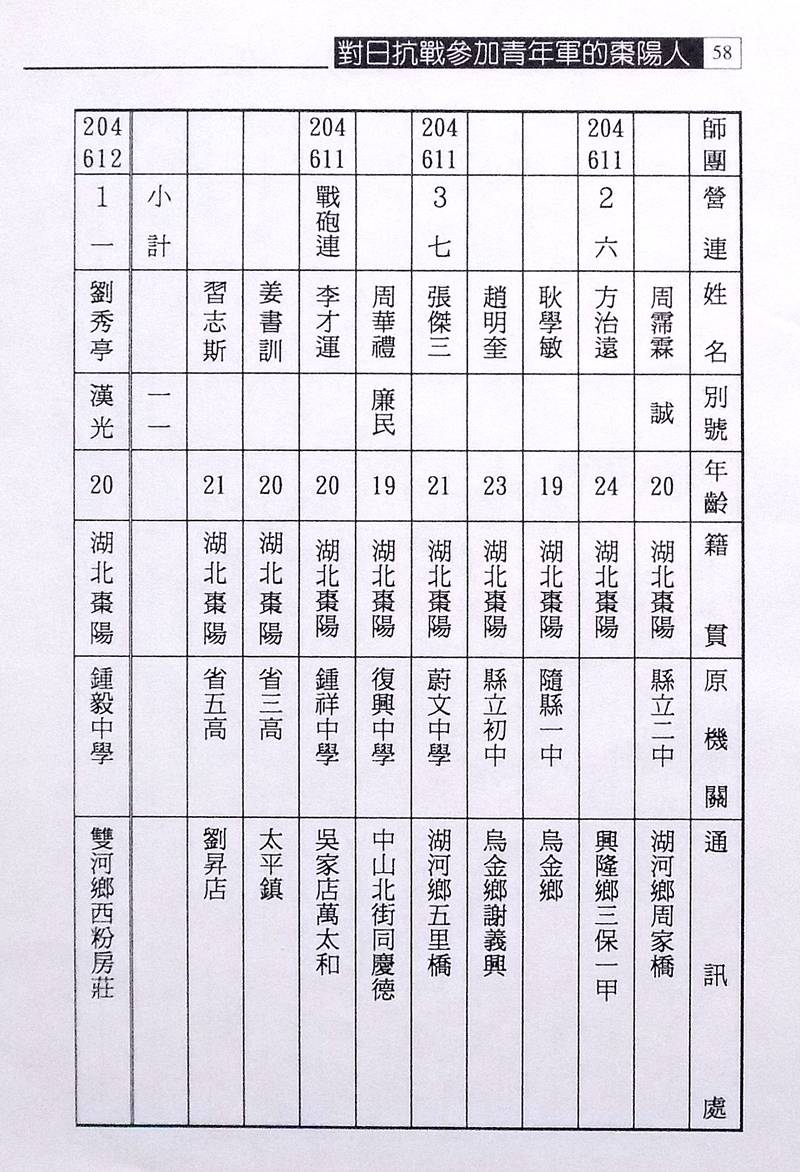 對日抗戰參加青年軍的棗陽人 58
師團 營連 姓名 別號 年齡 籍貫 原機關 通訊處
周霈霖 誠 20 湖北棗陽 縣立二中 湖河鄉周家橋
204 611 2 六 方治遠 24 湖北棗陽 興隆鄉三保一甲
耿學敏 19 湖北棗陽 隨縣一中 烏金鄉
趙明奎 23 湖北棗陽 縣立初中 烏金鄉謝義興
204 611 3 七 張傑三 21 湖北棗陽 蔚文中學 湖河鄉五里橋
周華禮 廉民 19 湖北棗陽 復興中學 中山北街同慶德
204 611 戰砲連 李才運 20 湖北棗陽 鍾祥中學 吳家店萬太和
姜書訓 20 湖北棗陽 省三高 太平鎮
習志斯 21 湖北棗陽 省五高 劉昇店
小計 一一
204 612 1 一 劉秀亭 漢光 20 湖北棗陽 鍾毅中學 雙河鄉西粉房莊